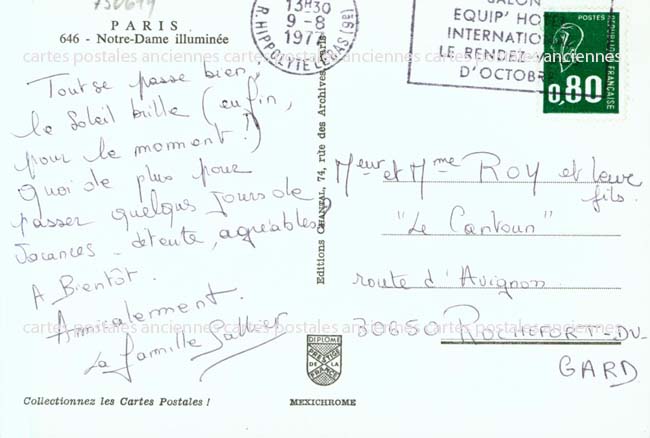 750699
PARIS
646 - Notre-Dame illuminée
Tout se passe bien,
le Soleil brille (enfin,
pour le moment!)
Quoi de plus pour
passer quelques jours de
vacances - détente, agréables?
A Bientôt.
Amicalement.
La famille
Collectionnez les Cartes Postales !
Editions CHANTAL, 74, rue des Archives
DIPLOME
PRESTIGE
DE LA
FRANCE
MEXICHROME
13H30
9-8
1977
R. HIPPOLYTE LEBAS (9E)
SALON
EQUIP' HO
INTERNATIO
LE RENDEZ-
D'OCTOB
POSTES
0,80
REPUBLIQUE FRANÇAISE
Meur et Mme ROY et leurs
fils.
"Le Cantoun"
route d'Avignon
30650 ROCHEFORT-DU-
GARD
cartes postales anciennes cartes postales anciennes cartes postales anciennes
cartes postales anciennes cartes postales anciennes cartes postales anciennes
cartes postales anciennes cartes postales anciennes cartes postales anciennes